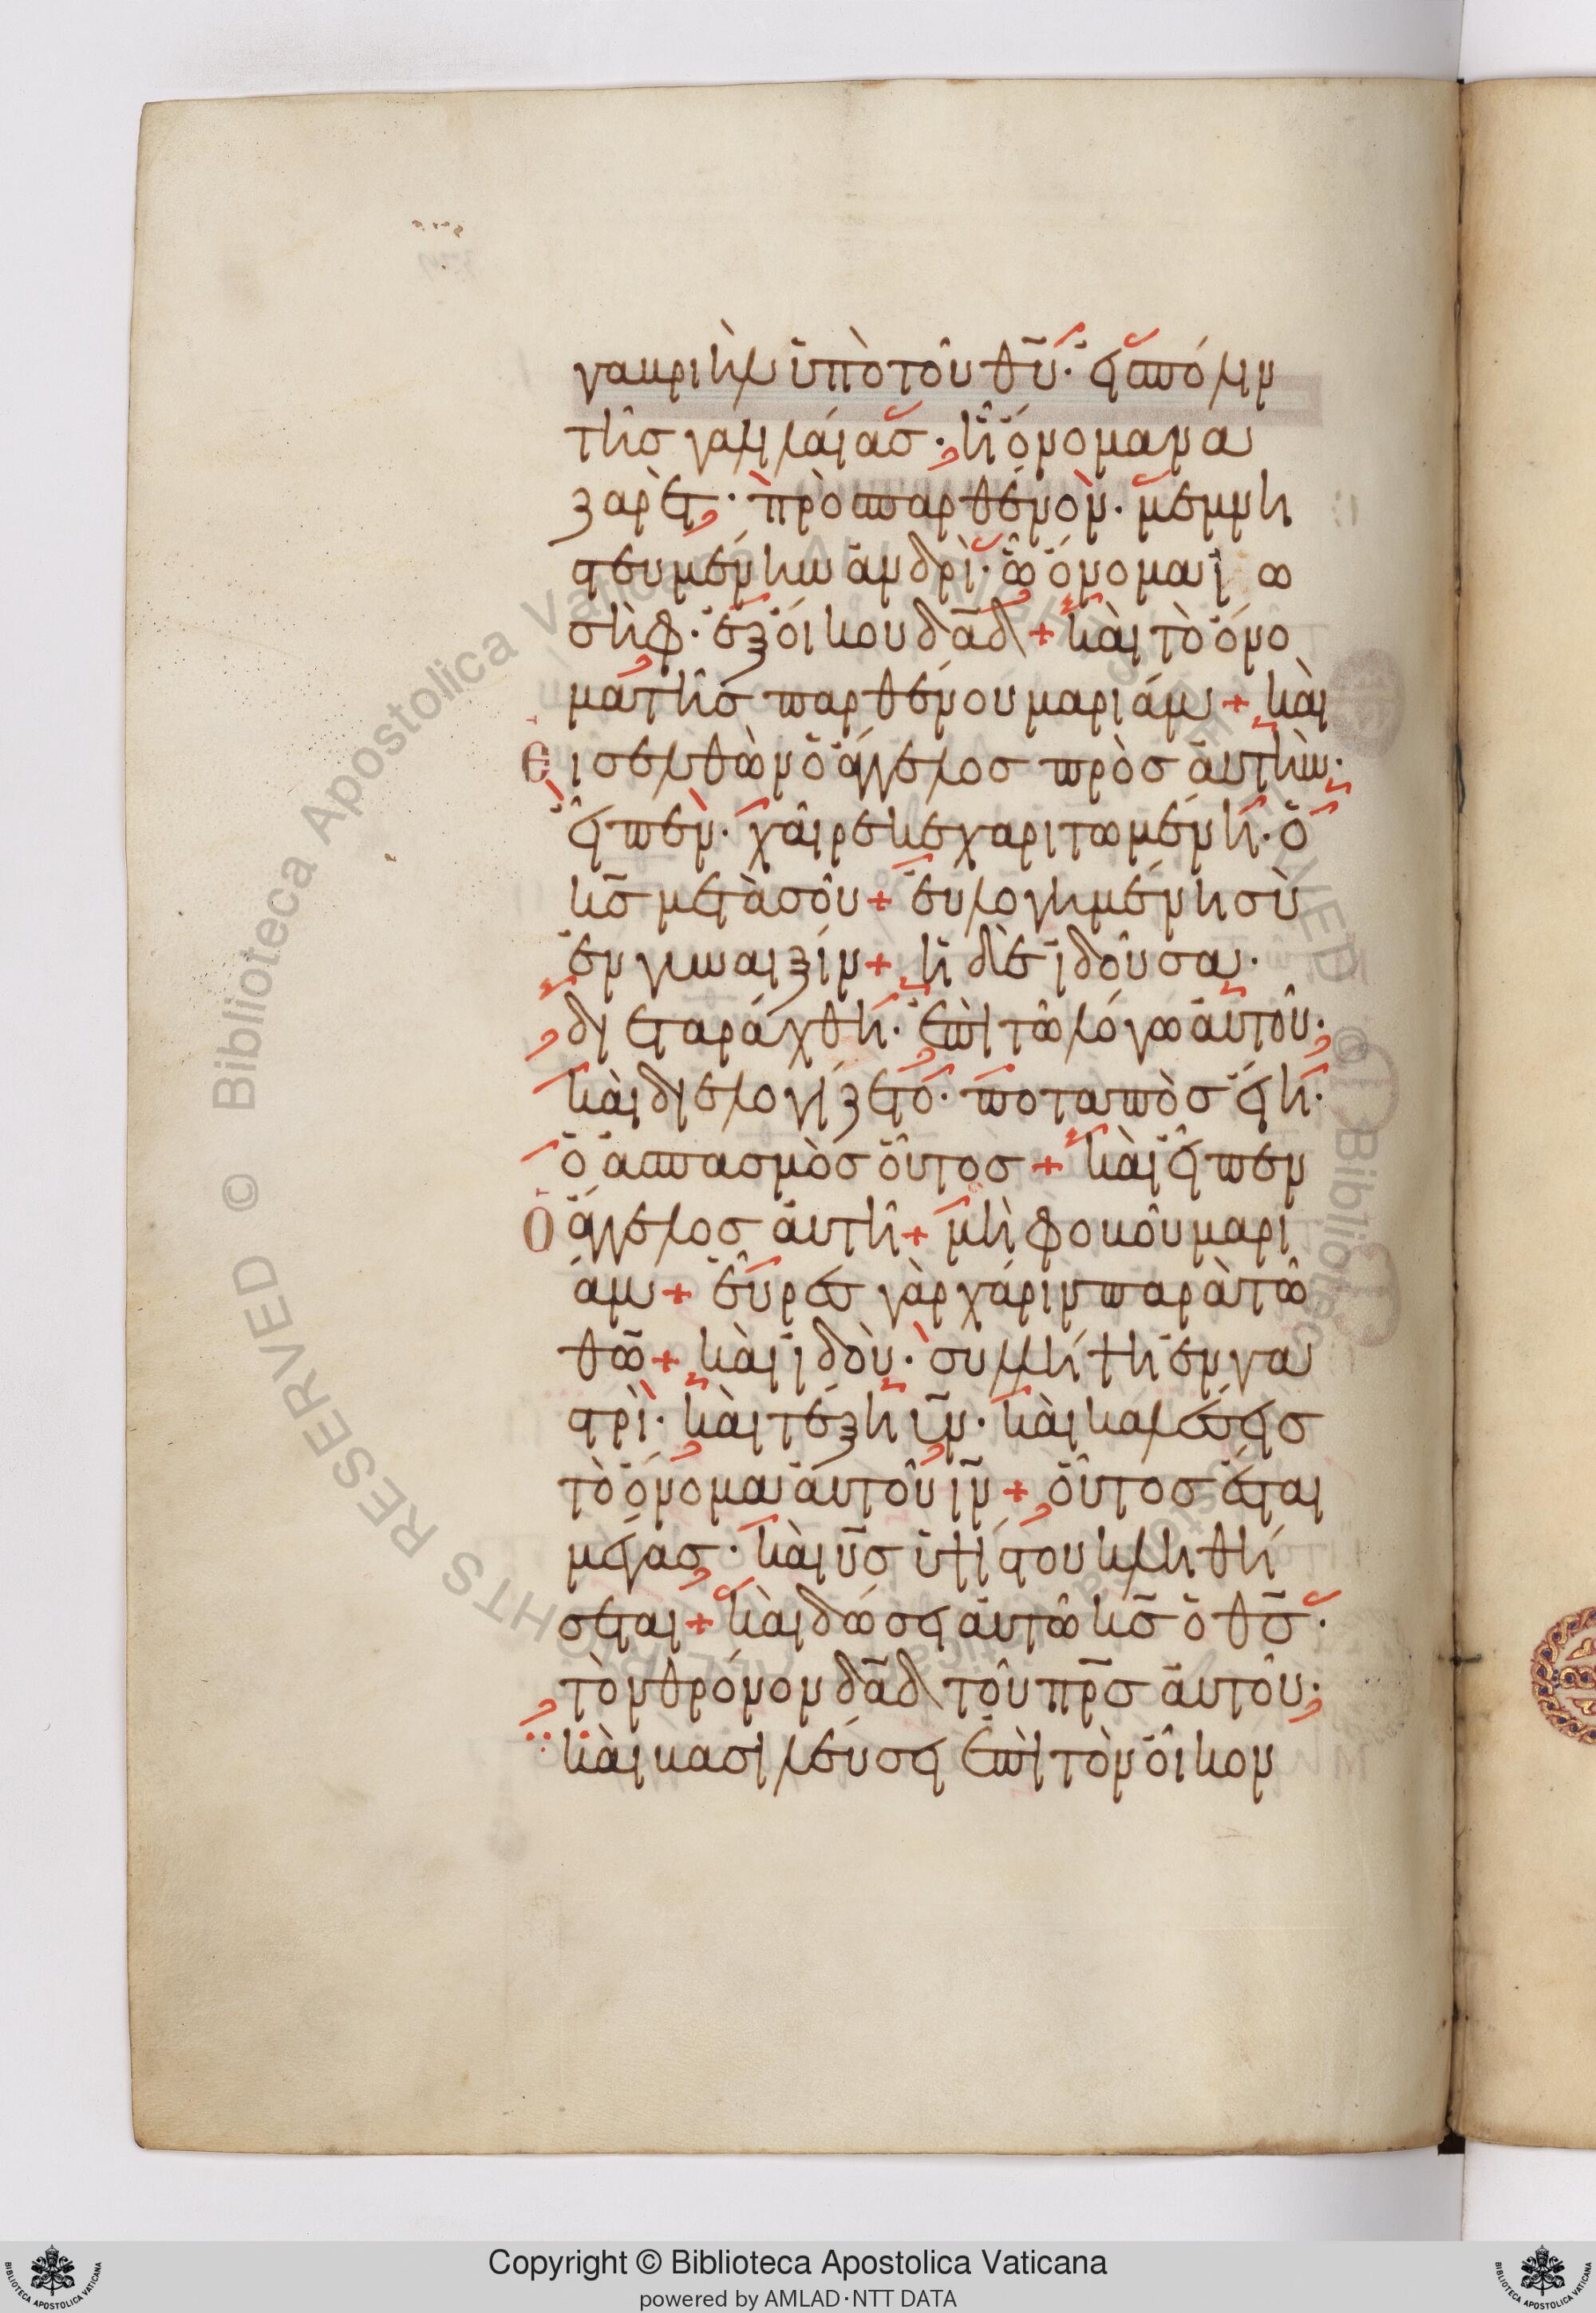 γαβριὴλ ὑπὸ τοῦ θ̅υ̅· εἰς πόλιν
τῆς γαλιλαίας· ἧ ὄνομα να
ζαρὲτ· πρὸς παρθένον· μεμνη
στευμένην ἀνδρὶ· ὧ ὄνομα ϊω
σὴφ· ἐξ οἴκου δα̅δ̅ + καὶ τὸ ὄνο
μα τῆς παρθένου μαριάμ + καὶ
εισελθὼν ὁ ἄγγελος πρὸς ἀυτὴν·
εἶπεν· χαῖρε κεχαριτωμένη· ὁ
κ̅ς̅ μετὰ σοῦ + ἐυλογημένη σὺ
ἐν γυναιξίν + ἡ δὲ ϊδοῦσα·
διεταράχθη· ἐπὶ τῶ λόγω ἀυτοῦ·
καὶ διελογίζετο· ποταπὸς εἴη·
ὁ ἀσπασμὸς οὗτος + καὶ εἶπεν
Ο ἄγγελος ἀυτῆ + μὴ φοβοῦ μαρι
άμ + εὗρες γὰρ χάριν παρὰ τῶ
θ̅ω̅ + καὶ ϊδοὺ· συλλήψη ἐν γα
στρὶ· καὶ τέξη υ̅ν̅· καὶ καλέσεις
τὸ ὄνομα ἀυτοῦ ι̅ν̅ + οὗτος ἔσται
μέγας· καὶ υ̅ς̅ ὑψίστου κληθή
σεται + καὶ δώσει ἀυτῶ κ̅ς̅ ὁ θ̅ς̅·
τὸν θρόνον δα̅δ̅ τοῦ π̅ρ̅ς̅ ἀυτοῦ·
καὶ βασιλεύσει ἐπὶ τὸν οἶκον
Biblioteca Apostolica Vaticana
© Biblioteca
ALL RIGHTS RESERVED ©
Copyright © Biblioteca Apostolica Vaticana
powered by AMLAD·NTT DATA